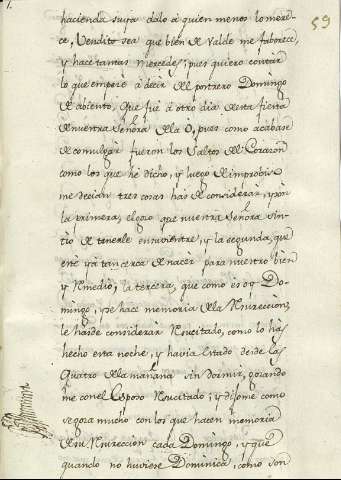 59
hacienda suya dalo a quien menos lo mere-
ce, Vendito sea que bien de Valde me faborece,
y hace tantas mercedes, pues quiero contar
lo que empecé a decir del postrero Domingo
de abiento, que fué a otro dia desta fiesta
de nuestra Señora dela O, pues como acabase
de comulgar fueron los Saltos del Corazon
como los que he dicho, y luego de improbiso
me decian tres cosas has de considerar, y son
la primera, el gozo que nuestra Señora sin-
tio de tenerle en su vientre, y la segunda, que
esté ya tan cerca de nacer para nuestro bien
y Remedio, la tercera, que como es oy Do-
mingo, y se hace memoria dela Resureccion,
le has de considerar Resucitado, como lo has
hecho esta noche, y havia estado desde las
quatro dela mañana sin dormir, gozando
me con el Esposo Resucitado, y dijome como
se goza mucho con los que hacen memoria
de su Resureccion cada Domingo, y que
quando no huviese Dominica, como son